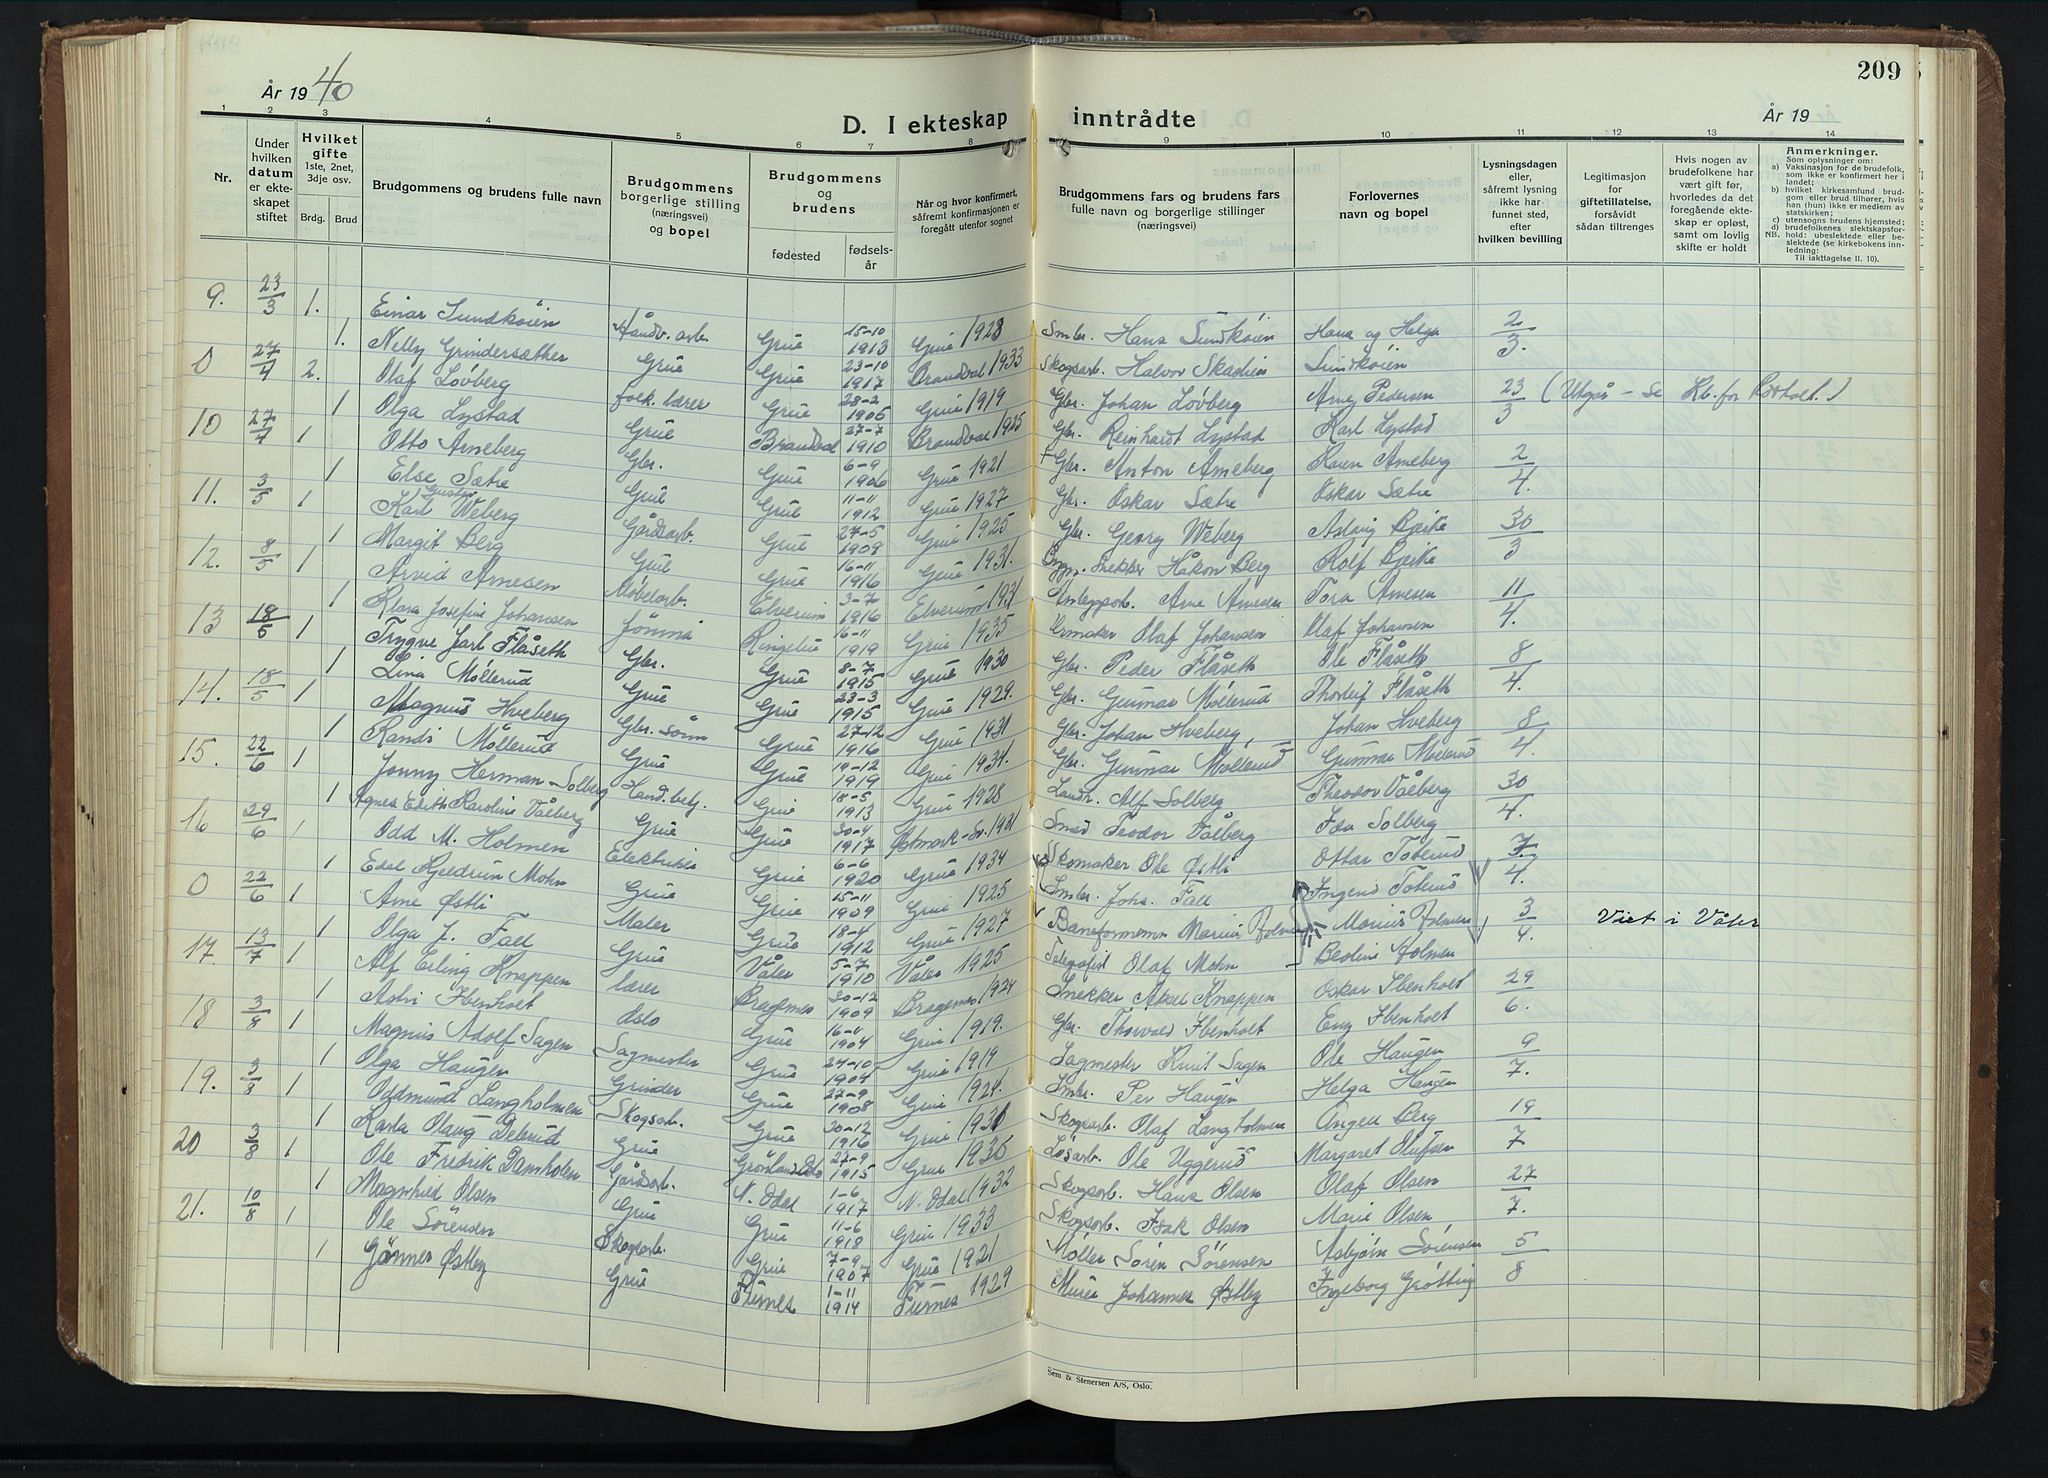 År 1940
D. I ekteskap inntrådte
År 19
209
1 2 3 4 5 6 7 8 9 10 11 12 13 14
Nr.
Under hvilken datum er ekteskapet stiftet
Hvilket gifte 1ste, 2net, 3dje osv.
Brdg. Brud
Brudgommens og brudens fulle navn
Brudgommens borgerlige stilling (næringsvei) og bopel
Brudgommens og brudens
fødested fødselsår
Når og hvor konfirmert, såfremt konfirmasjonen er foregått utenfor sognet
Brudgommens fars og brudens fars fulle navn og borgerlige stillinger (næringsvei)
Forlovernes navn og bopel
Lysningsdagen eller, såfremt lysning ikke har funnet sted, efter hvilken bevilling
Legitimasjon for giftetillatelse, forsåvidt sådan tiltrenges
Hvis nogen av brudefolkene har vært gift før, hvorledes da det foregående ekteskap er opløst, samt om lovlig skifte er holdt
Anmerkninger.
Som oplysninger om:
a) Vaksinasjon for de brudefolk, som ikke er konfirmert her i landet;
b) hvilket kirkesamfund brudgom eller brud tilhører, hvis han (hun) ikke er medlem av statskirken;
c) utensogns brudens hjemsted;
d) brudefolkenes slektskapsforhold: ubeslektede eller beslektede (se kirkebokens innledning:
NB.
Til iakttagelse II. 10).
9. 23/3 1. Einar Sundkøien Håndv. arb. Grue 15-10 1913 Grue 1928 Smbr. Hans Sundkøien Hans og Helga 2/3.
1. Nelly Grindersæther Grue Grue 23-10 1917 Brandval 1933 Skogsarb. Halvor Skadien Sundkøien
0 27/4 2. Olaf Løvberg folk. lærer Grue 28-2 1905 Grue 1919 Gbr. Johan Løvberg Arne Pedersen 23/3 (Utgår - se Kb. for
1 Olga Lystad Grue Brandval 27-7 1910 Brandval 1925 Gbr. Reinhardt Lystad Karl Lystad
10 27/4 1 Otto Arneberg Gbr. Grue 6-9 1906 Grue 1921 + Gbr. Anton Arneberg Karen Arneberg 2/4.
1 Else Sætre Grue Grue 11-11 1912 Grue 1927 Gbr. Oskar Sætre Oskar Sætre
11. 3/5 1 Karl Gustav Weberg Gårdsarb. Grue 27-5 1909 Grue 1925 Gbr. Georg Weberg Aslaug Bjerke 30/3
1 Margit Berg Grue Grue 16-11 1916 Grue 1931. Bygn. snekker Håkon Berg Rolf Bjerke
12. 8/5 1 Arvid Arnesen Møbelarb. Elverum 3-7 1916 Elverum 1931 Anleggsarb. Arne Arnesen Tora Arnesen 11/4.
1 Klara Josefine Johansen Jømna Ringebu 16-11 1919 Grue 1935 Urmaker Olaf Johansen Olaf Johansen
13 18/5 1 Trygve Jarl Flåseth Gbr. Grue 8-7 1915 Grue 1930 Gbr. Peder Flåseth Ole Flåseth 8/4.
1 Lina Møllerud Grue Grue 23-3 1915 Grue 1929. Gbr. Gunnar Møllerud Thorleif Flåseth
14. 18/5 1 Magnus Hveberg Gbr. sønn Grue 27-12 1916 Grue 1931 Gbr. Johan Hveberg, Johan Hveberg 8/4.
1 Randi Møllerud Grue Grue 19-12 1919 Grue 1934. Gbr. Gunnar Møllerud Gunnar Møllerud
15. 22/6 1 Jonny Herman Solberg Hand. betj. Grue 18-5 1913 Grue 1928 Landh. Alf Solberg Theodor Vålberg 30/4.
1 Agnes Edith Karoline Vålberg Grue Grue 30-4 1917 Østmark-Sv. 1931 Smed Teodor Vålberg Ida Solberg
16 29/6 1 Odd M. Holmen Elektriker Grue 6-6 1920 Grue 1934 Skomaker Ole Østli Ottar Toterud 7/4.
1 Edel Gjeldrun Mohn Grue Grue 15-11 1909 Grue 1925 Smbr. Johs. Fall Ingerid Toterud
0 22/6 1 Arne Østli Maler Grue 18-4 1912 Grue 1927 Baneformann Marius Holmen Marius Holmen 3/4. Viet i Våler
1 Olga J. Fall Grue Våler 5-7 1910 Våler 1925 Telegrafist Olaf Mohn Beoline Holmen
17. 13/7 1 Alf Erling Knappen lærer Bragernes 30-12 1909 Bragernes 1924 Snekker Aksel Knappen Oskar Ibenholt 29/6.
1 Astri Ibenholt Oslo Grue 16-11 1904 Grue 1919. Gbr. Thorvald Ibenholt Eng Ibenholt
18 3/8 1 Magnus Adolf Sagen Sagmester Grue 24-10 1904 Grue 1919 Sagmester Knut Sagen Ole Haugen 9/7.
1 Olga Haugen Grinder Grue 27-9 1908 Grue 1924. Smbr. Per Haugen Helga Haugen
19. 3/8 1 Oddmund Langholmen Skogsarb. Grue 30-12 1916 Grue 1931 Skogsarb. Olaf Langholmen Angell Berg 19/7
1 Karla Olaug Delerud Grue Grønland Oslo 27-9 1915 Grue 1930 Løsarb. Ole Uggerud Margaret Olufsen
20 3/8 1 Ole Fredrik Damholen Gårdsarb. N. Odal 1-6 1917 N. Odal 1932 Skogsarb. Hans Olsen Olaf Olsen 27/7.
1 Magnhild Olsen Grue Grue 11-6 1918 Grue 1933 Skogsarb. Isak Olsen Marie Olsen
21. 10/8 1 Ole Sørensen Skogsarb. Grue 7-9 1907 Grue 1921 Møller Søren Sørensen Asbjørn Sørensen 5/8
1 Gönner Østby Grue Furnes 1-11 1914 Furnes 1929 Murer Johannes Østby Ingeborg Grøtting
Sem & Stenersen A/S, Oslo.